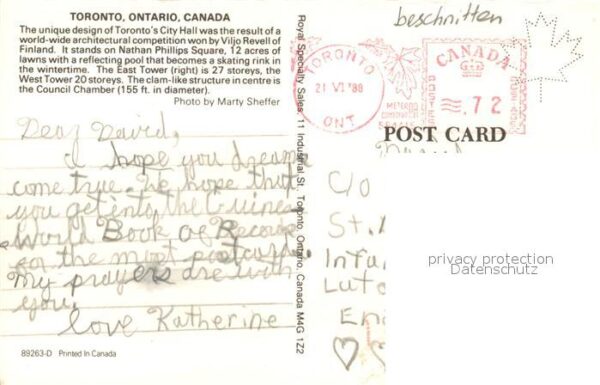 TORONTO, ONTARIO, CANADA
The unique design of Toronto's City Hall was the result of a
world-wide architectural competition won by Viljo Revell of
Finland. It stands on Nathan Phillips Square, 12 acres of
lawns with a reflecting pool that becomes a skating rink in
the wintertime. The East Tower (right) is 27 storeys, the
West Tower 20 storeys. The clam-like structure in centre is
the Council Chamber (155 ft. in diameter).
Photo by Marty Sheffer
Dear David,
I hope you dreams
come true. We hope that
you get into the Guiness
World Book of Records
for the most postcards.
My prayers are with
you.
love Katherine
89263-D Printed In Canada
Royal Specialty Sales, 11 Industrial St. Toronto, Ontario, Canada M4G 1Z2
beschnitten
TORONTO
21 VI '88
ONT
CANADA
.72
POSTES
POST CARD
C/O
St.
Infa
Luto
En
privacy protection
Datenschutz